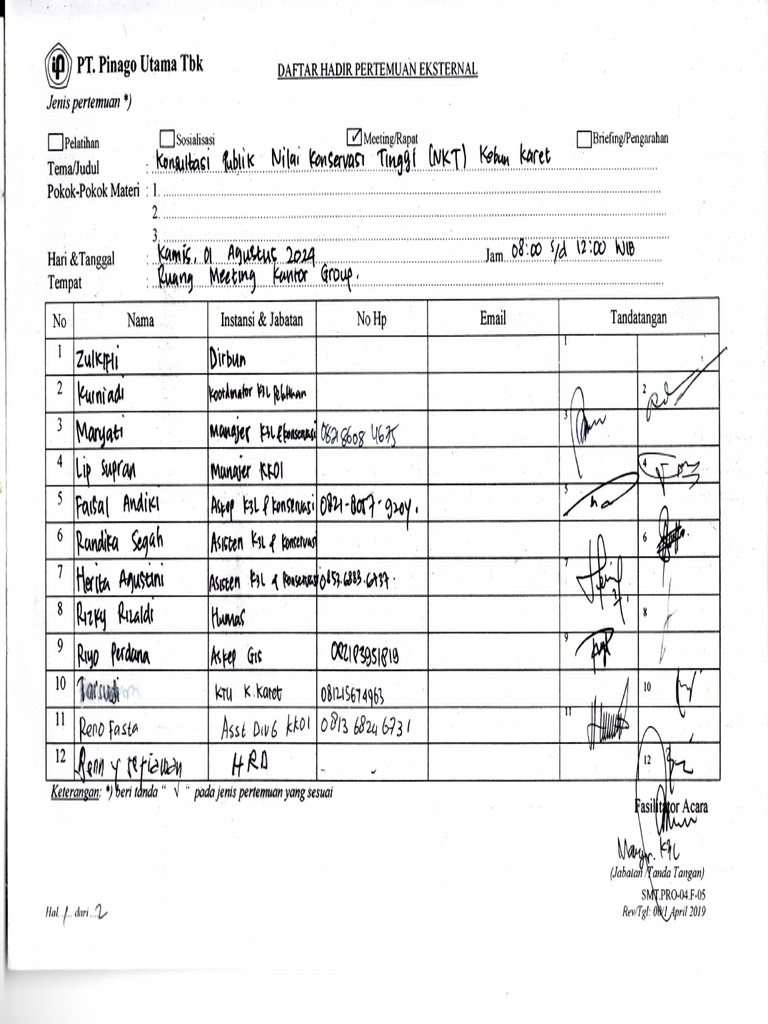 PT. Pinago Utama Tbk
DAFTAR HADIR PERTEMUAN EKSTERNAL
Jenis pertemuan *)
Pelatihan Sosialisasi ✓ Meeting/Rapat Briefing/Pengarahan
Tema/Judul : Konsultasi Publik Nilai Konservasi Tinggi (NKT) Kebun Karet
Pokok-Pokok Materi : 1.
2.
3.
Hari & Tanggal : Kamis, 01 Agustus 2024 Jam 08:00 s/d 12:00 WIB
Tempat : Ruang Meeting Kantor Group.
No Nama Instansi & Jabatan No Hp Email Tandatangan
1 Zulkifli Dirbun 1
2 Kurniadi Koordinator K3L Pelatihan 2
3 Maryati Manajer K3L & Konservasi 0821 8608 4675 3
4 Lip Supran Manajer KK01 4
5 Faisal Andiki Askep K3L & Konservasi 0821-8057-9204. 5
6 Randika Segah Asisten K3L & Konservasi 6
7 Herita Agustini Asisten K3L & Konservasi 0857.6883.6737. 7
8 Rizky Rizaldi Humas 8
9 Riyo Perdana Askep GIS 082183951819 9
10 KTU K.Karet 081215674963 10
11 Reno Fasta Asst Div 6 KK01 0813 6824 6731 11
12 HRD - - 12
Keterangan: *) beri tanda " √ " pada jenis pertemuan yang sesuai
Fasilitator Acara
K3L
(Jabatan /Tanda Tangan)
SMT.PRO-04.F-05
Hal. 1 dari 2 Rev/Tgl: 00/1 April 2019